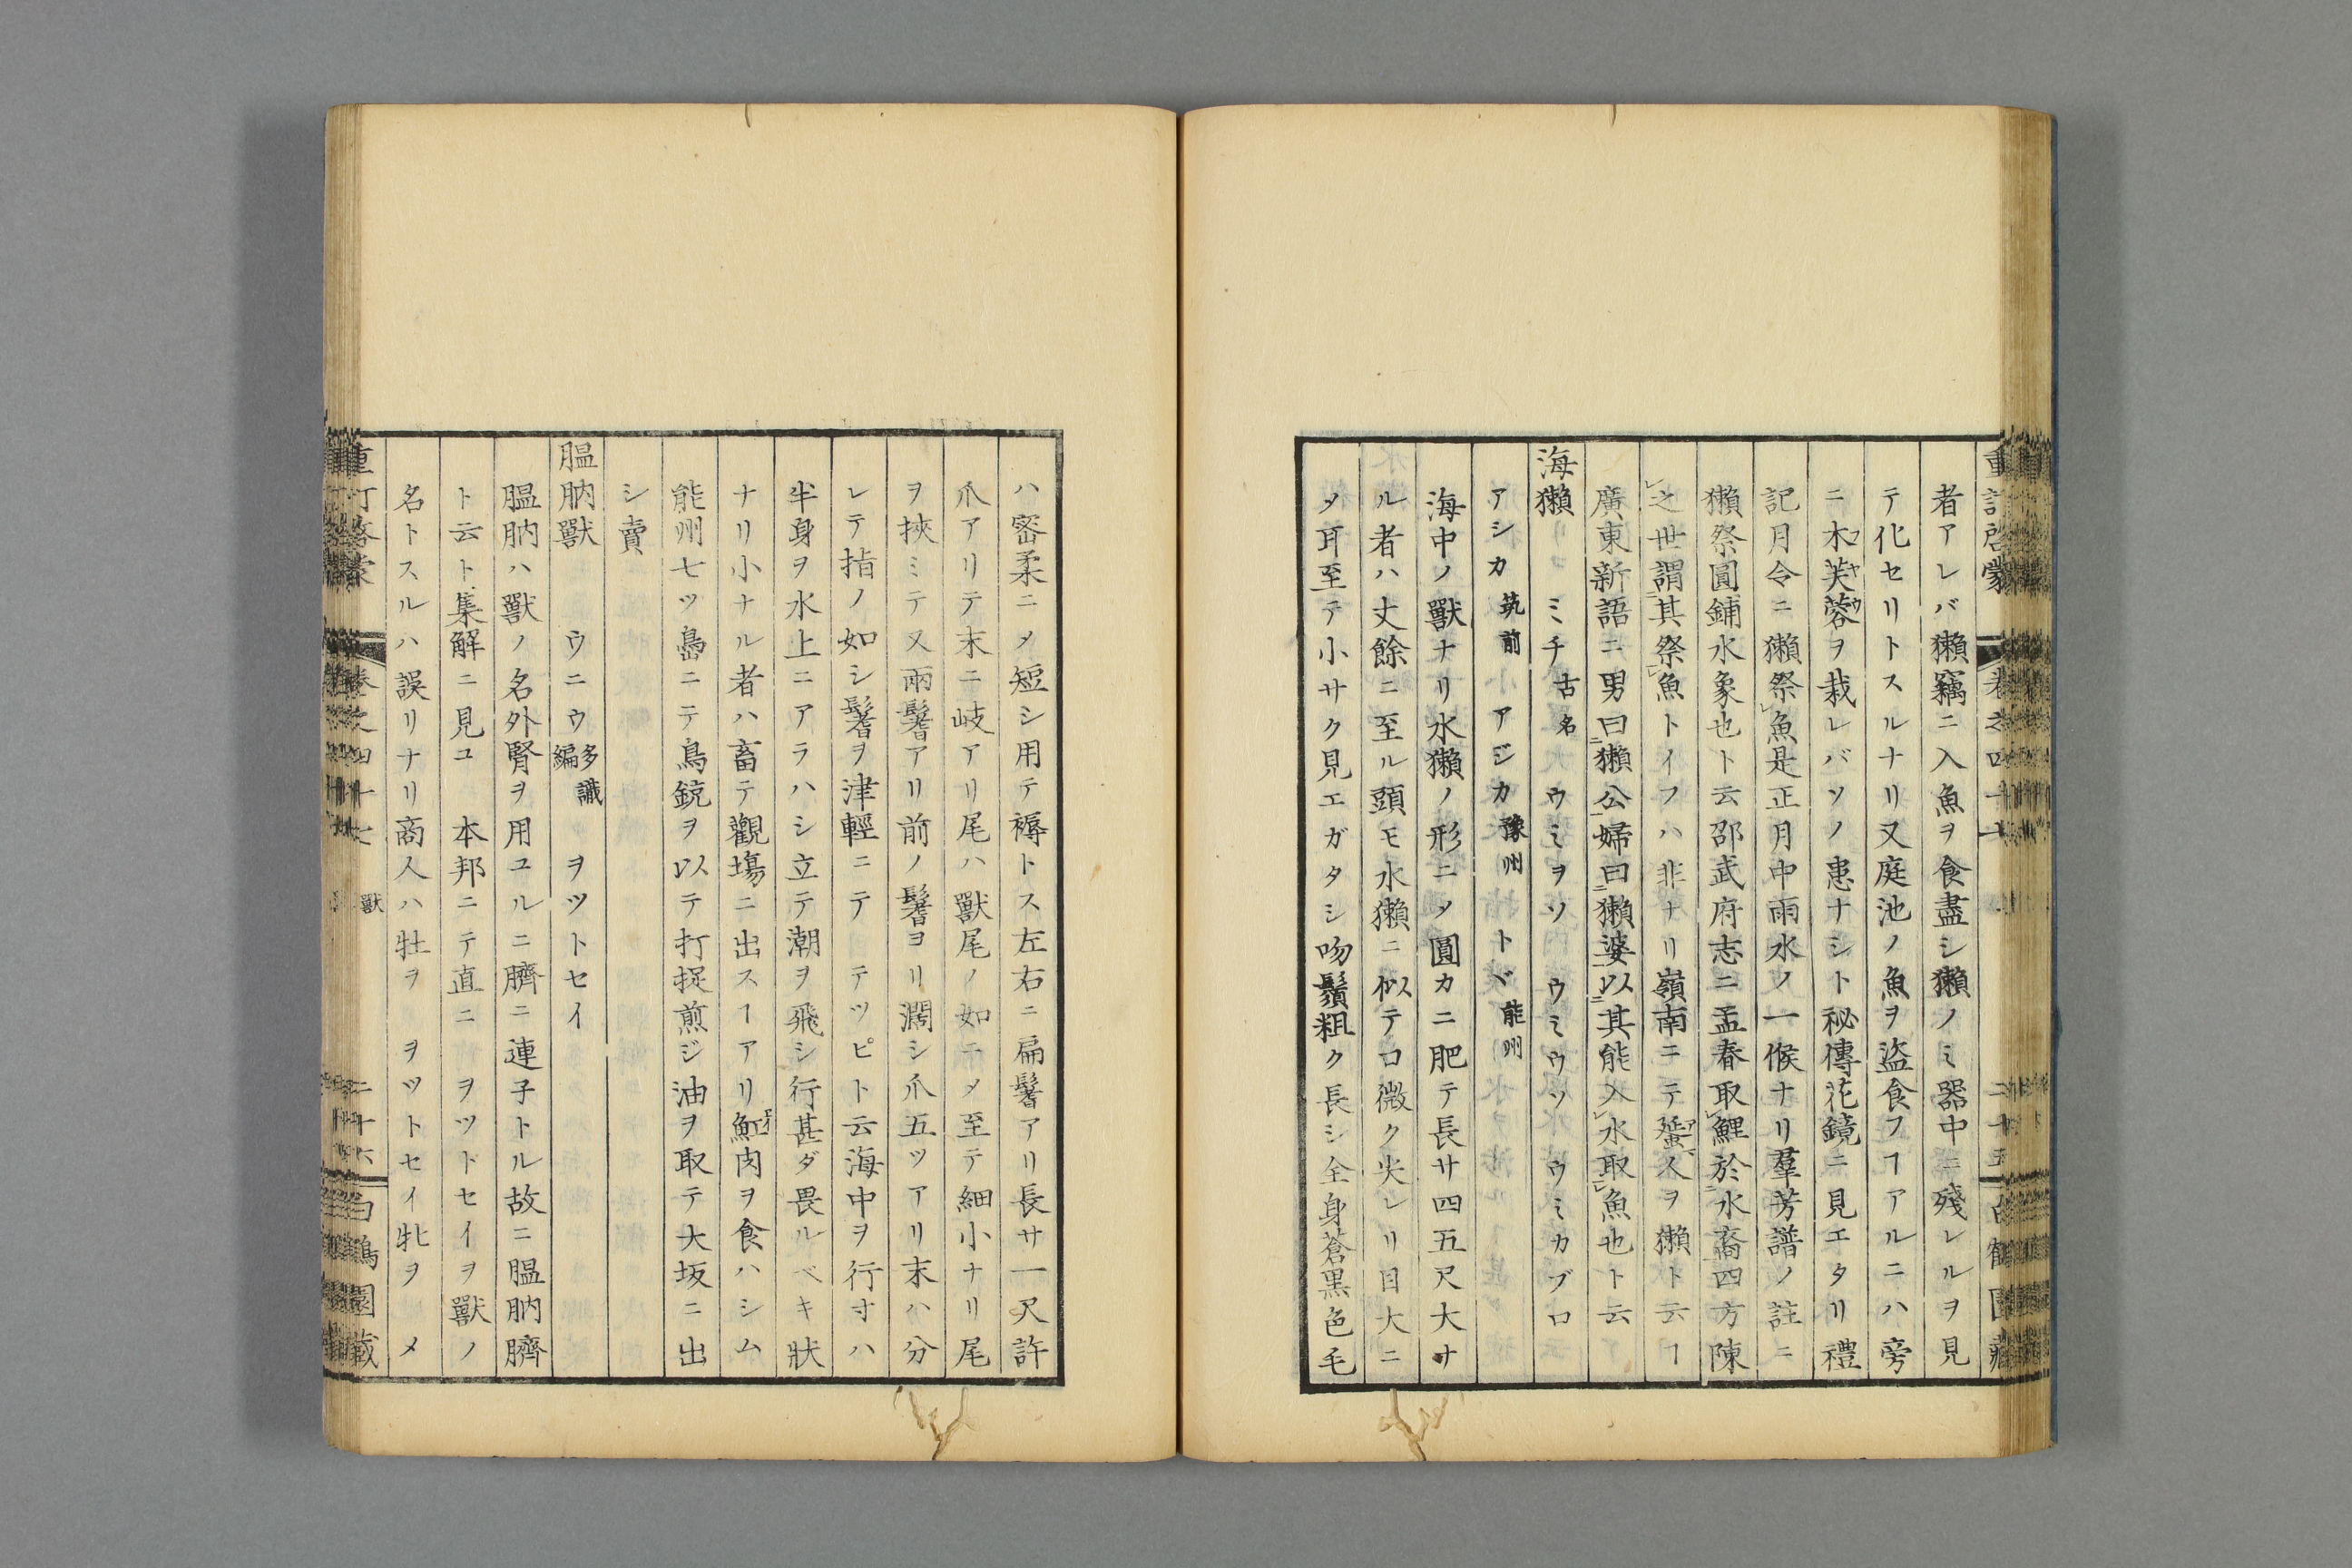 者アレバ獺竊ニ入魚ヲ食盡シ獺ノミ器中ニ殘レルヲ見
テ化セリトスルナリ又庭池ノ魚ヲ盜食フヿアルニハ旁
ニ木芙蓉ヲ栽レバソノ患ナシト秘傳花鏡ニ見エタリ禮
記月令ニ獺祭魚是正月中雨水ノ一候ナリ羣芳譜ノ註ニ
獺祭圓鋪水象也ト云邵武府志ニ孟春取鯉於水裔四方陳
之世謂其祭魚トイフハ非ナリ嶺南ニテ蜑人ヲ獺ト云ヿ
廣東新語ニ男曰獺公婦曰獺婆以其能入水取魚也ト云
海獺 ミチ古名 ウミヲソ ウミウソ ウミカブロ
アシカ筑前 アジカ豫州 トヾ能州
海中ノ獸ナリ水獺ノ形ニメ圓カニ肥テ長サ四五尺大サ
ル者ハ丈餘ニ至ル頭モ水獺ニ似テ口微ク尖レリ目大ニ
メ耳至テ小サク見エガタシ吻鬚粗ク長シ全身蒼黒色毛
ハ密柔ニメ短シ用テ褥トス左右ニ扁鬐アリ長サ一尺許
爪アリテ末ニ岐アリ尾ハ獸尾ノ如ニメ至テ細小ナリ尾
ヲ挾ミテ又兩鬐アリ前ノ鬐ヨリ濶シ爪五ツアリ末ハ分
レテ指ノ如シ鬐ヲ津輕ニテ テツピト云海中ヲ行寸ハ
半身ヲ水上ニアラハシ立テ潮ヲ飛シ行甚ダ畏ルベキ狀
ナリ小ナル者ハ畜テ觀塲ニ出スヿアリ魟肉ヲ食ハシム
能州七ツ嶌ニテ鳥銃ヲ以テ打捉煎ジ油ヲ取テ大坂ニ出
シ賣
膃肭獸 ウニウ多識編 ヲツトセイ
膃肭ハ獸ノ名外腎ヲ用ユルニ臍ニ連子トル故ニ膃肭臍
ト云ト集解ニ見ユ 本邦ニテ直ニ ヲツトセイヲ獸ノ
名トスルハ誤リナリ商人ハ牡ヲ ヲツトセイ牝ヲ メ